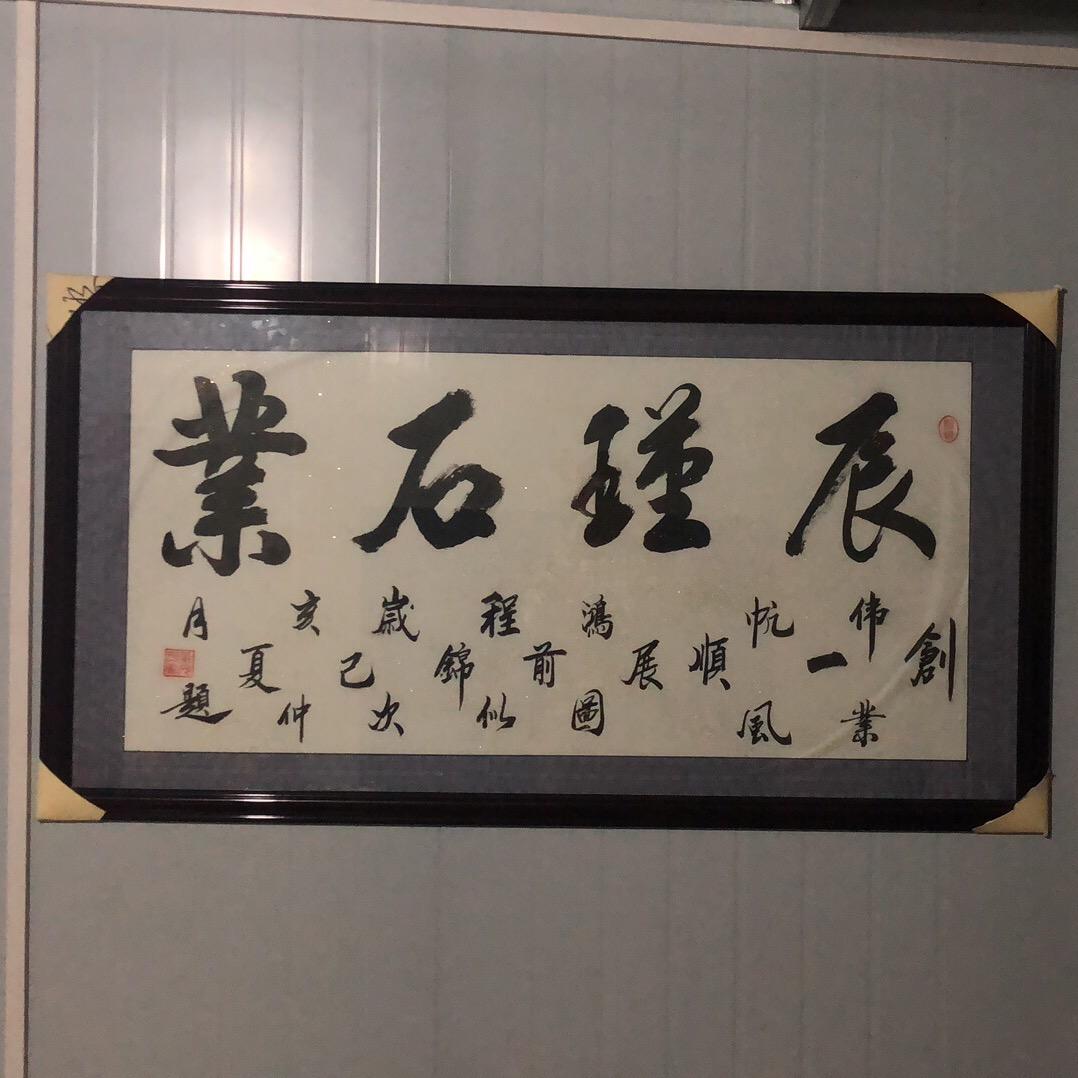 辰瑾石業
創伟業一帆風順展鴻圖前程似錦歲次己亥仲夏月題